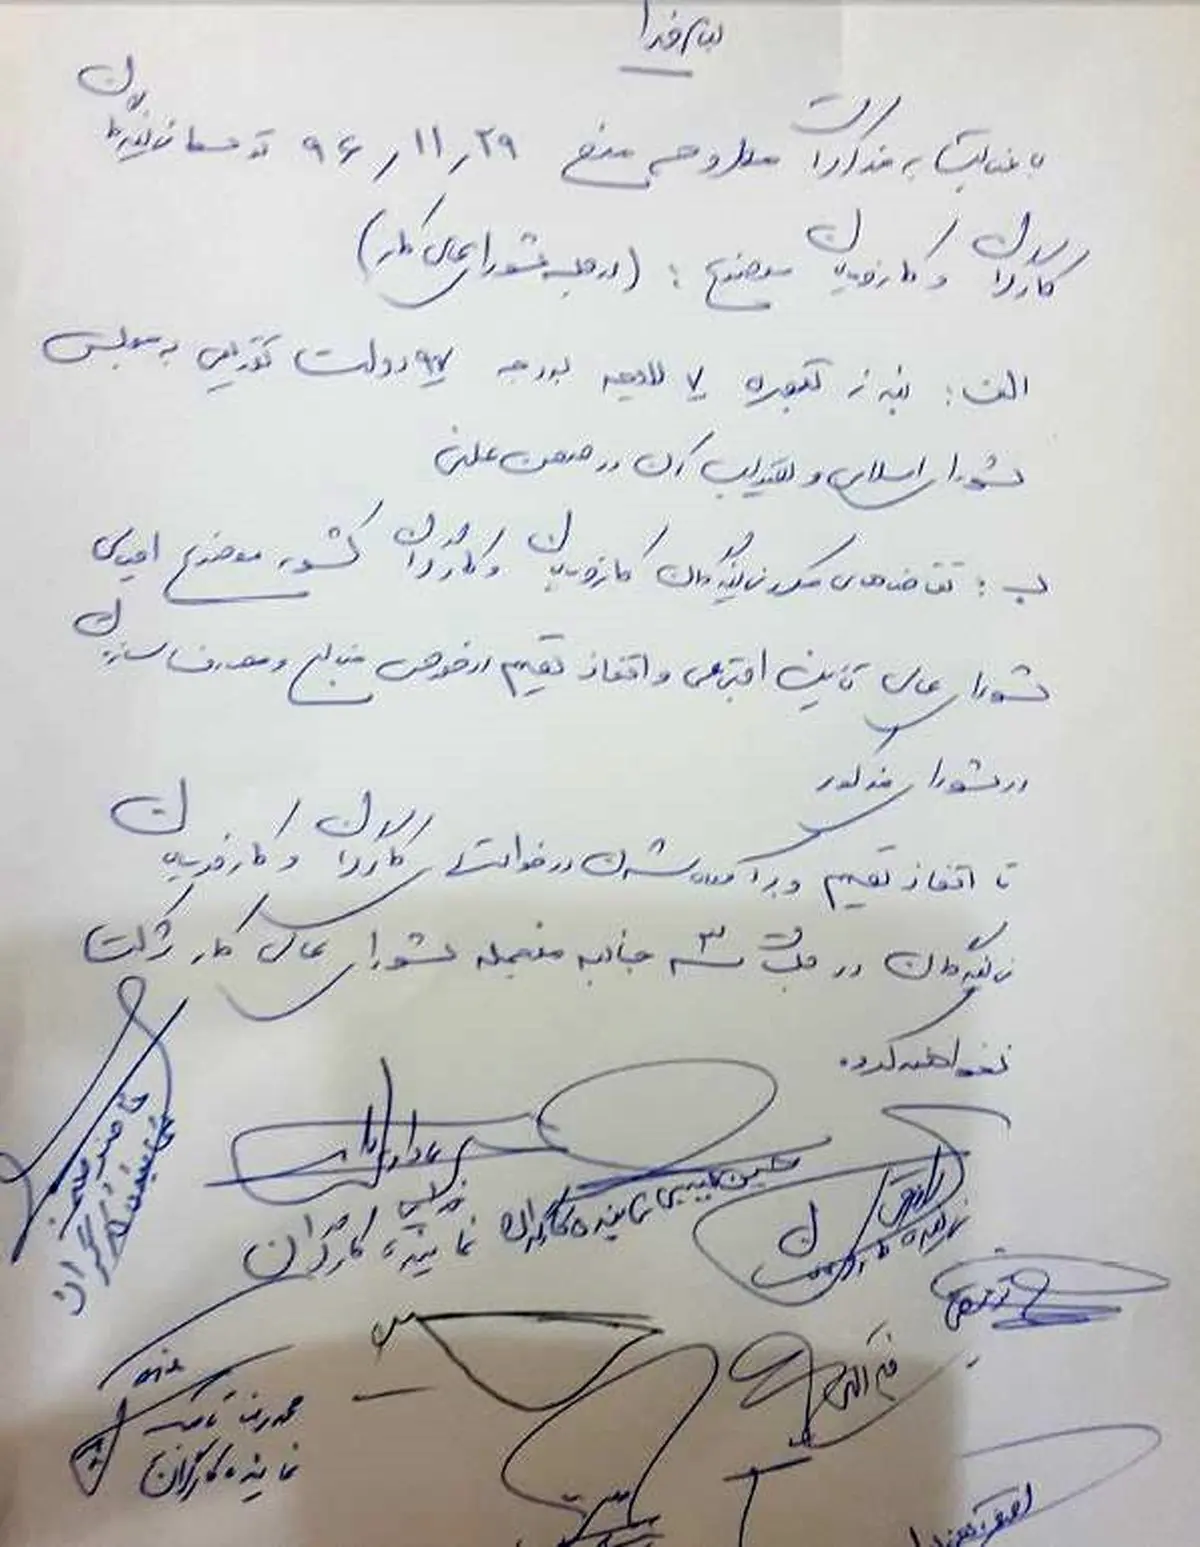 بنام خدا
با عنایت به مذاکرات مطروحه مورخ ۹۶/۱۱/۲۹ توسط نمایندگان
کارگران و کارفرمایان موضوع : (در جلسه شورای عالی کار)
الف : بند ز تبصره ۷ لایحه بودجه ۹۷ دولت تقدیمی به مجلس
شورای اسلامی و تصویب آن در صحن علنی
ب : تقاضاهای مکرر نمایندگان کارفرمایان و کارگران کشور موضوع احیای
شورای عالی تامین اجتماعی و اتخاذ تصمیم در خصوص منابع و مصارف سازمان
در شورای مذکور
تا اتخاذ تصمیم و برآورده شدن درخواست کارگران و کارفرمایان
نمایندگان در جلسات ۳ جانبه منجمله شورای عالی کار شرکت
نخواهند کرد.
نماینده کارگران
حسین حبیبی نماینده کارگران
نماینده کارفرمایان
محمدرضا
نماینده کارگران